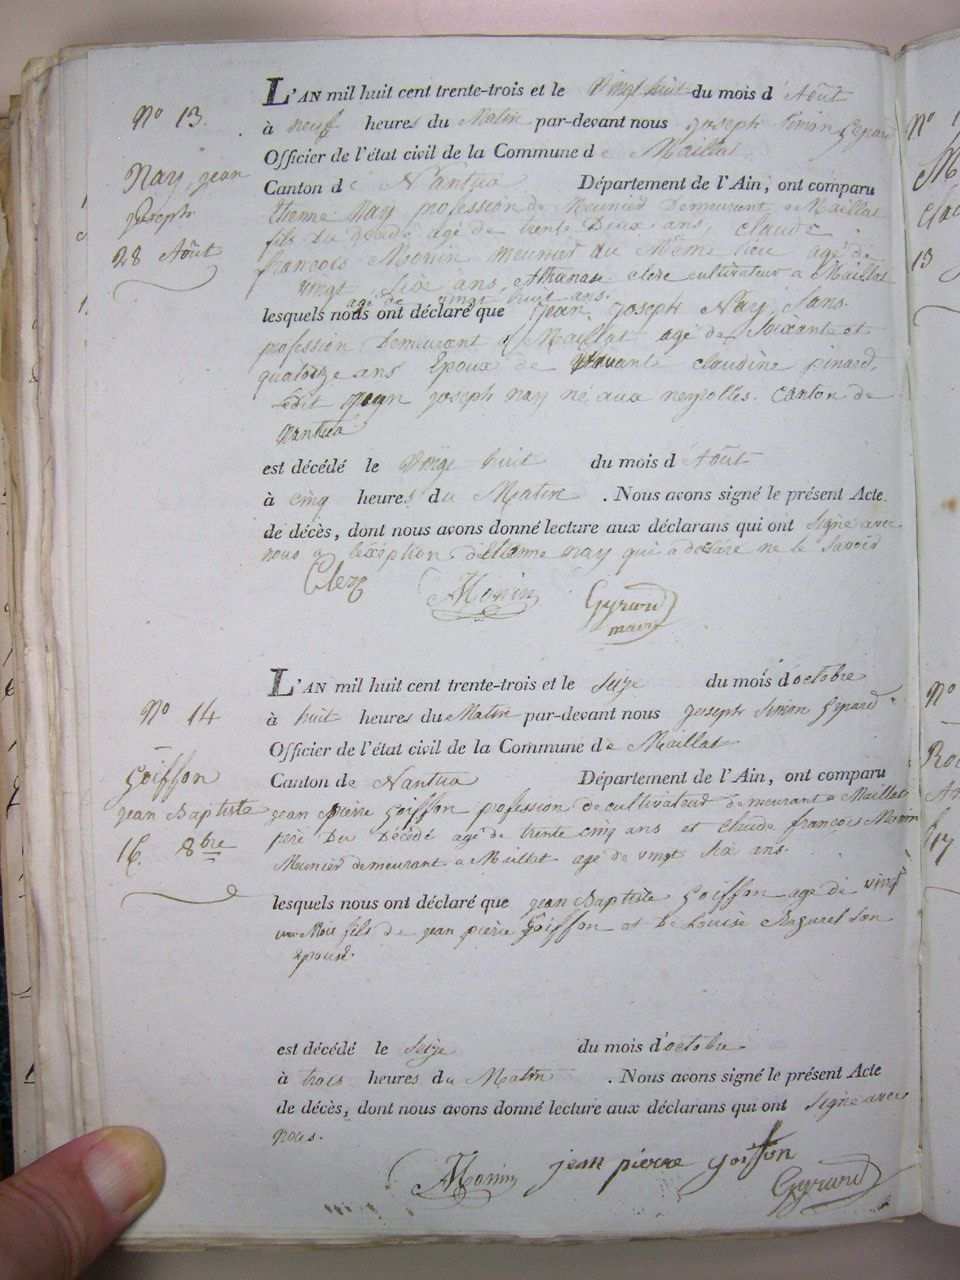 N° 13.
Nay, jean
joseph
28 Août
L'AN mil huit cent trente-trois et le vingt huit du mois d'Août
à neuf heures du Matin par-devant nous joseph Simon
Officier de l'état civil de la Commune de Maillat
Canton de Nantua Département de l'Ain, ont comparu
Etienne Nay profession de Meunier Demeurent a Maillat
fils du agé de trente Deux ans, claude
francois Monin meunier du Même lieu agé de
vingt Sixe ans, Athanase clerc cultivateur a Maillat
agé de vingt huit ans.
lesquels nous ont déclaré que jean joseph Nay, Sans
profession Demeurant a Maillat agé de Soixante et
quatorze ans Epoux de vivante claudine pinard,
Ledit jean joseph nay né aux neyrolles. Canton de
Nantua
est décédé le vingt huit du mois d'Août
à cinq heures du Matin . Nous avons signé le présent Acte
de décès, dont nous avons donné lecture aux déclarans qui ont signé avec
nous a lexéption detienne nay qui a déclaré ne le savoir
Clerc Monin Gyrard
maire
N° 14
Goiffon
jean Baptiste
16. 8bre
L'AN mil huit cent trente-trois et le seize du mois d'octobre
à huit heures du Matin par-devant nous joseph Simon
Officier de l'état civil de la Commune de Maillat
Canton de Nantua Département de l'Ain, ont comparu
jean pierre Goiffon profession de cultivateur demeurant a Maillat
pere Du Décédé agé de trente cinq ans et claude francois Monin
Meunier demeurant a Maillat agé de vingt Six ans.
lesquels nous ont déclaré que jean Baptiste Goiffon age de vingt
un Mois fils de jean pierre Goiffon et De Louise son
épouse.
est décédé le seize du mois d'octobre
à trois heures du Matin . Nous avons signé le présent Acte
de décès, dont nous avons donné lecture aux déclarans qui ont signé avec
nous.
Monin jean pierre goiffon
Gyrard